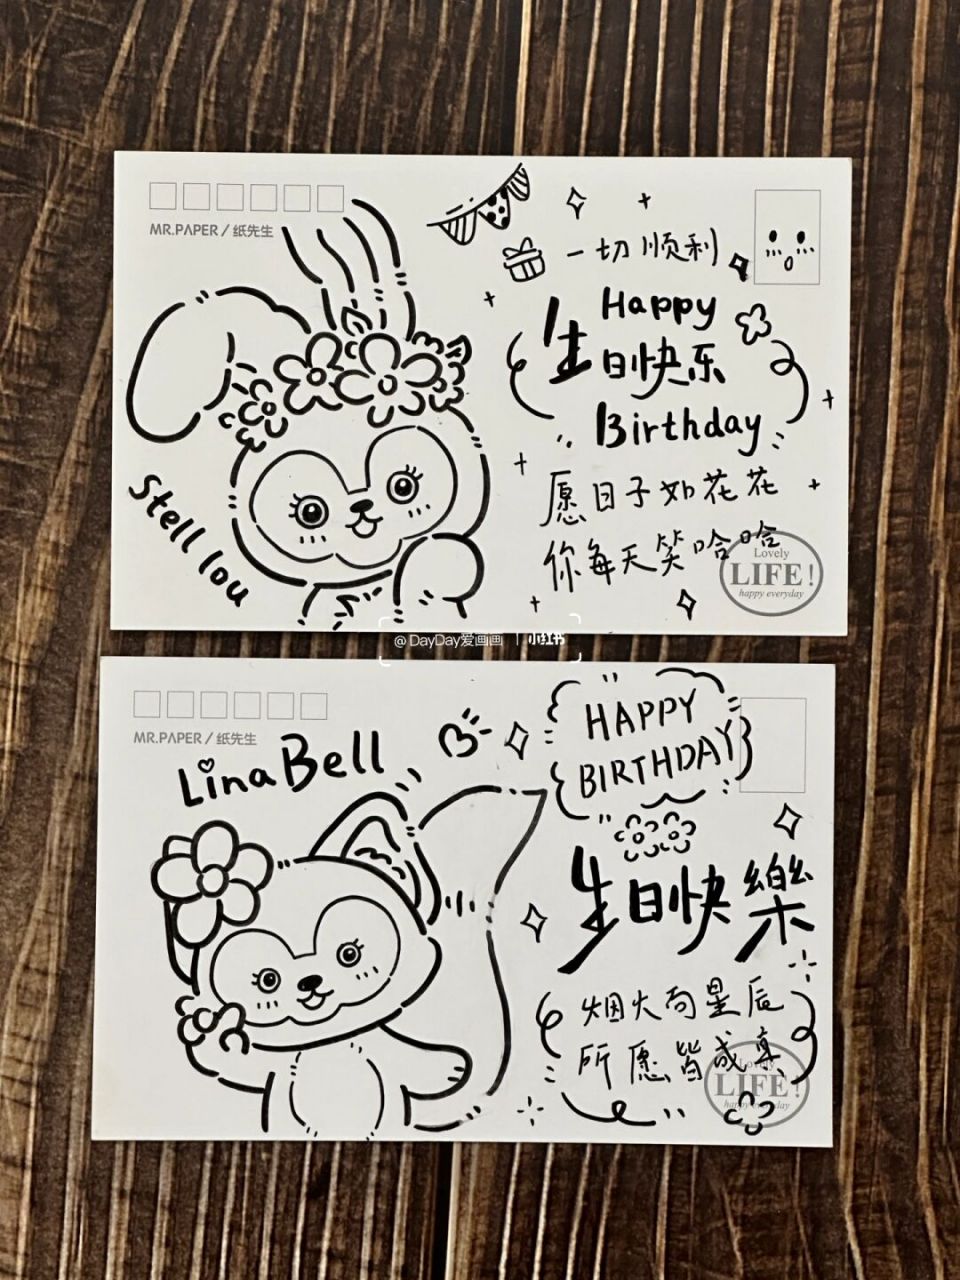 MR.PAPER / 纸先生
一切顺利
Happy
生日快乐
Birthday
愿日子如花花
你每天笑哈哈
Stell lou
Lovely
LIFE!
happy everyday
@DayDay爱画画 | 小红书
MR.PAPER / 纸先生
LinaBell
HAPPY
BIRTHDAY
生日快樂
烟火向星辰
所愿皆成真
Lovely
LIFE!
happy everyday